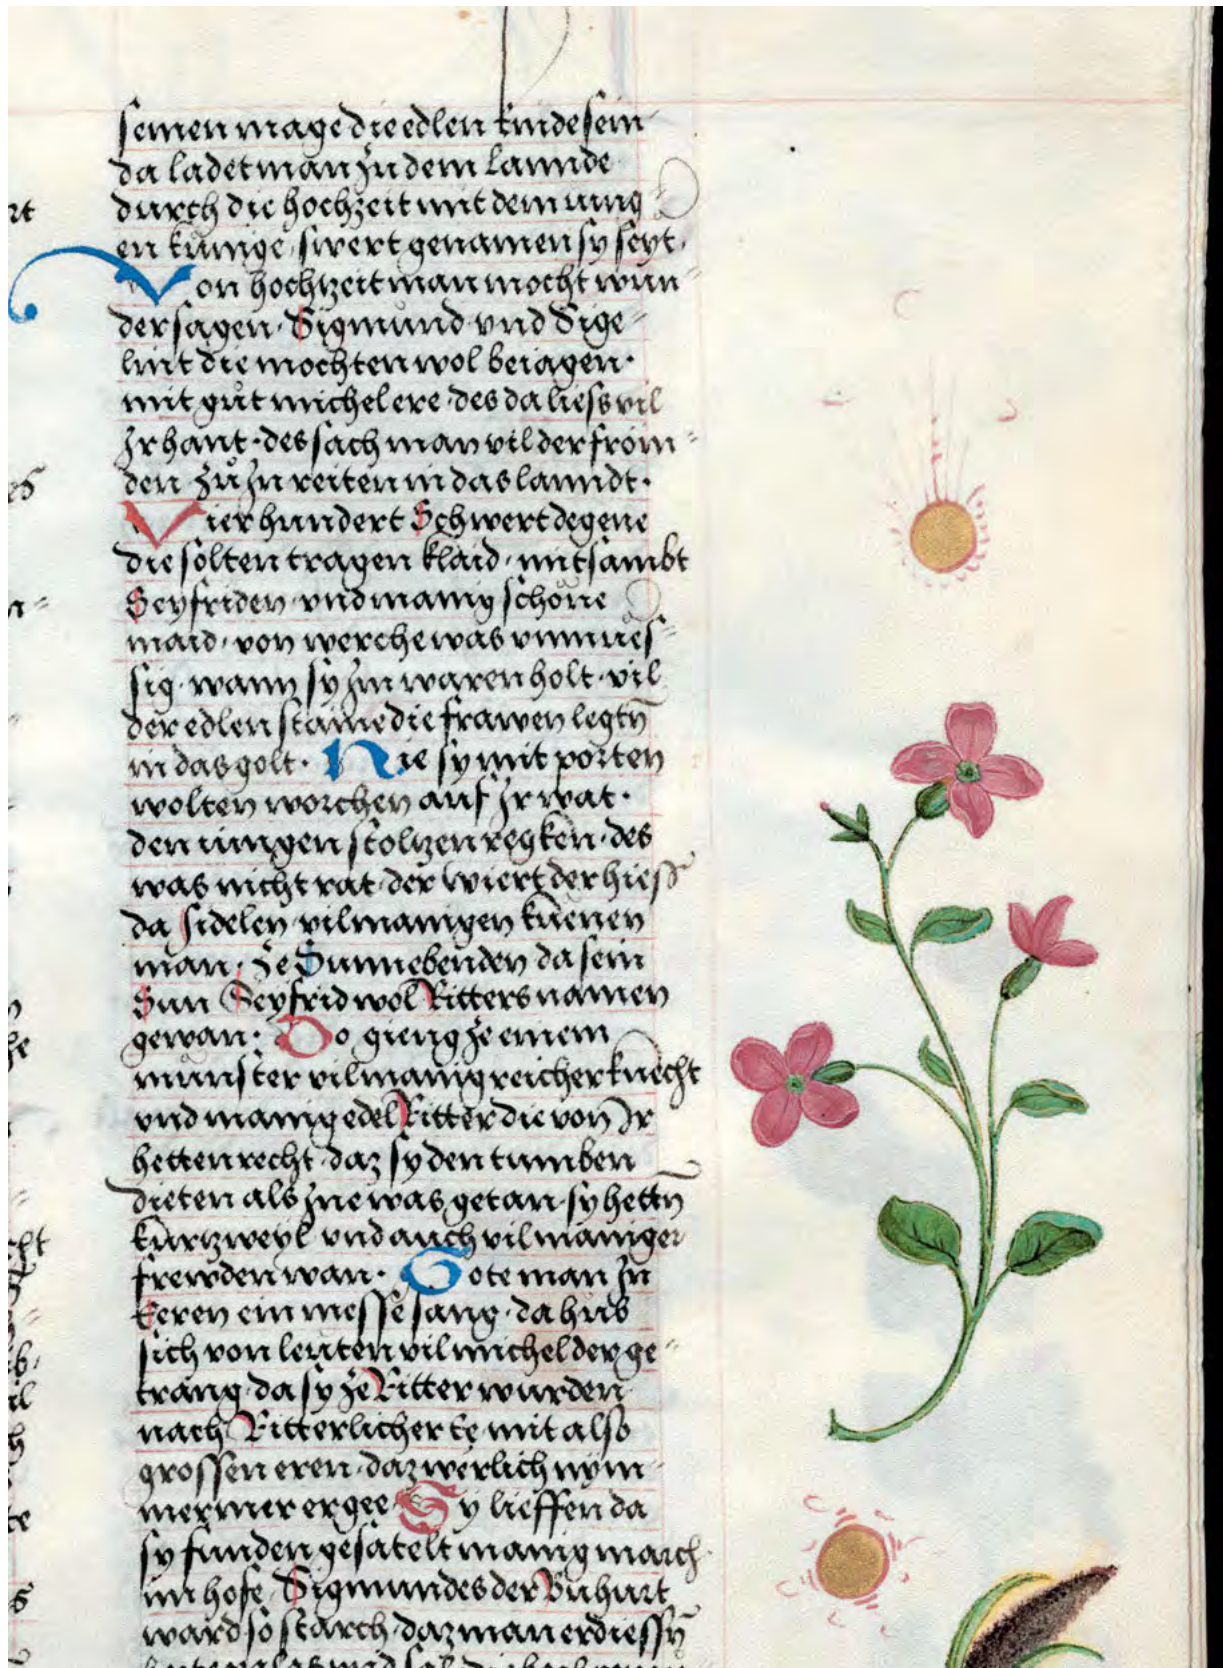 rt
es
seinen mage die edlen kinde sein
da ladet man zu dem lannde
durch die hochzeit mit dem iung
en kunige swert genamen sy seyt·
Von hochtzeit man mocht wun⸗
der sagen· Sigmund vnd Sige⸗
lint die mochten wol beiagen·
mit gůt michel ere· des da liess vil
Ir hant· des sach man vil der fröm⸗
den zů In reiten in das lanndt·
Vier hundert Schwert degene
die solten tragen klaid· mitsambt
Seyfriden· vnd manig schöne
maid· von werche was vnmues⸗
sig· wann sy Im waren holt· vil
der edlen staine die frawen legtn̄
in das golt· Die sy mit porten
wolten worchen auf Ir wat·
den iungen stoltzen regken· des
was nicht rat· der wiert der hiess
da sidelen vil manigen küenen
man· ze Sunnebenden da sein
Sun Seyfrid wol Ritters namen
gewan· Do gieng ze einem
münster vil manig reicher knecht
vnd manig edel Ritter die von Ir
hetten recht daz sy den tumben
dieten als Ine was getan· sy hettn̄
kurtzweyl vnd auch vil maniger
frewden wan· Gote man In
Eeren ein messe sang· da hůb
sich von leuten vil michel der ge⸗
trang· da sy ze Ritter wurden
nach Ritterlicher Ee mit also
grossen eren· daz wërlich nÿm
mermer ergee· Sy lieffen da
sy funden gesatelt manig march
im hofe Sigmundes der Buhurt
ward so starch· daz man erdiessn̄